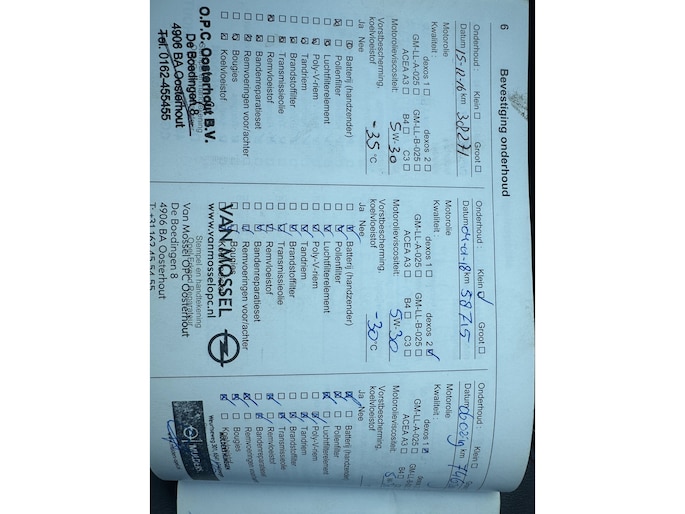 6 Bevestiging onderhoud
Onderhoud : Klein □ Groot □
Datum 15-12-16 km 38271
Motorolie
Kwaliteit : dexos 1 □ dexos 2 □
GM-LL-A-025 □ GM-LL-B-025 □
ACEA A3 □ B4 □ C3 □
Motorolieviscositeit: 5W-30
Vorstbescherming.
koelvloeistof -35 °C
Ja Nee
Batterij (handzender)
Pollenfilter
Luchtfilterelement
Poly-V-riem
Tandriem
Brandstoffilter
Transmissieolie
Remvloeistof
Bandenreparatieset
Remvoeringen voor/achter
Bougies
Koelvloeistof
O.P.C. Oosterhout B.V.
De Boedingen 8
4906 BA Oosterhout
Tel. 0162-455455
Onderhoud : Klein ☑ Groot □
Datum km 58715
Motorolie
Kwaliteit : dexos 1 □ dexos 2 ☑
GM-LL-A-025 □ GM-LL-B-025 □
ACEA A3 □ B4 □ C3 □
Motorolieviscositeit: 5W-30
Vorstbescherming.
koelvloeistof -30 °C
Ja Nee
Batterij (handzender)
Pollenfilter
Luchtfilterelement
Poly-V-riem
Tandriem
Brandstoffilter
Transmissieolie
Remvloeistof
Bandenreparatieset
Remvoeringen voor/achter
Bougies
VAN MOSSEL
www.vanmosselopc.nl
Stempel en handtekening
Van Mossel OPC Oosterhout
De Boedingen 8
4906 BA Oosterhout
Onderhoud : Klein □
Datum km
Motorolie
Kwaliteit : dexos 1 ☒
GM-LL-A-025 □
ACEA A3 □
Motorolieviscositeit:
Vorstbescherming.
koelvloeistof
Ja Nee
Batterij (handzender
Pollenfilter
Luchtfilterelement
Poly-V-riem
Tandriem
Brandstoffilter
Transmissieolie
Remvloeistof
Bandenreparatie
Remvoeringen
Bougies